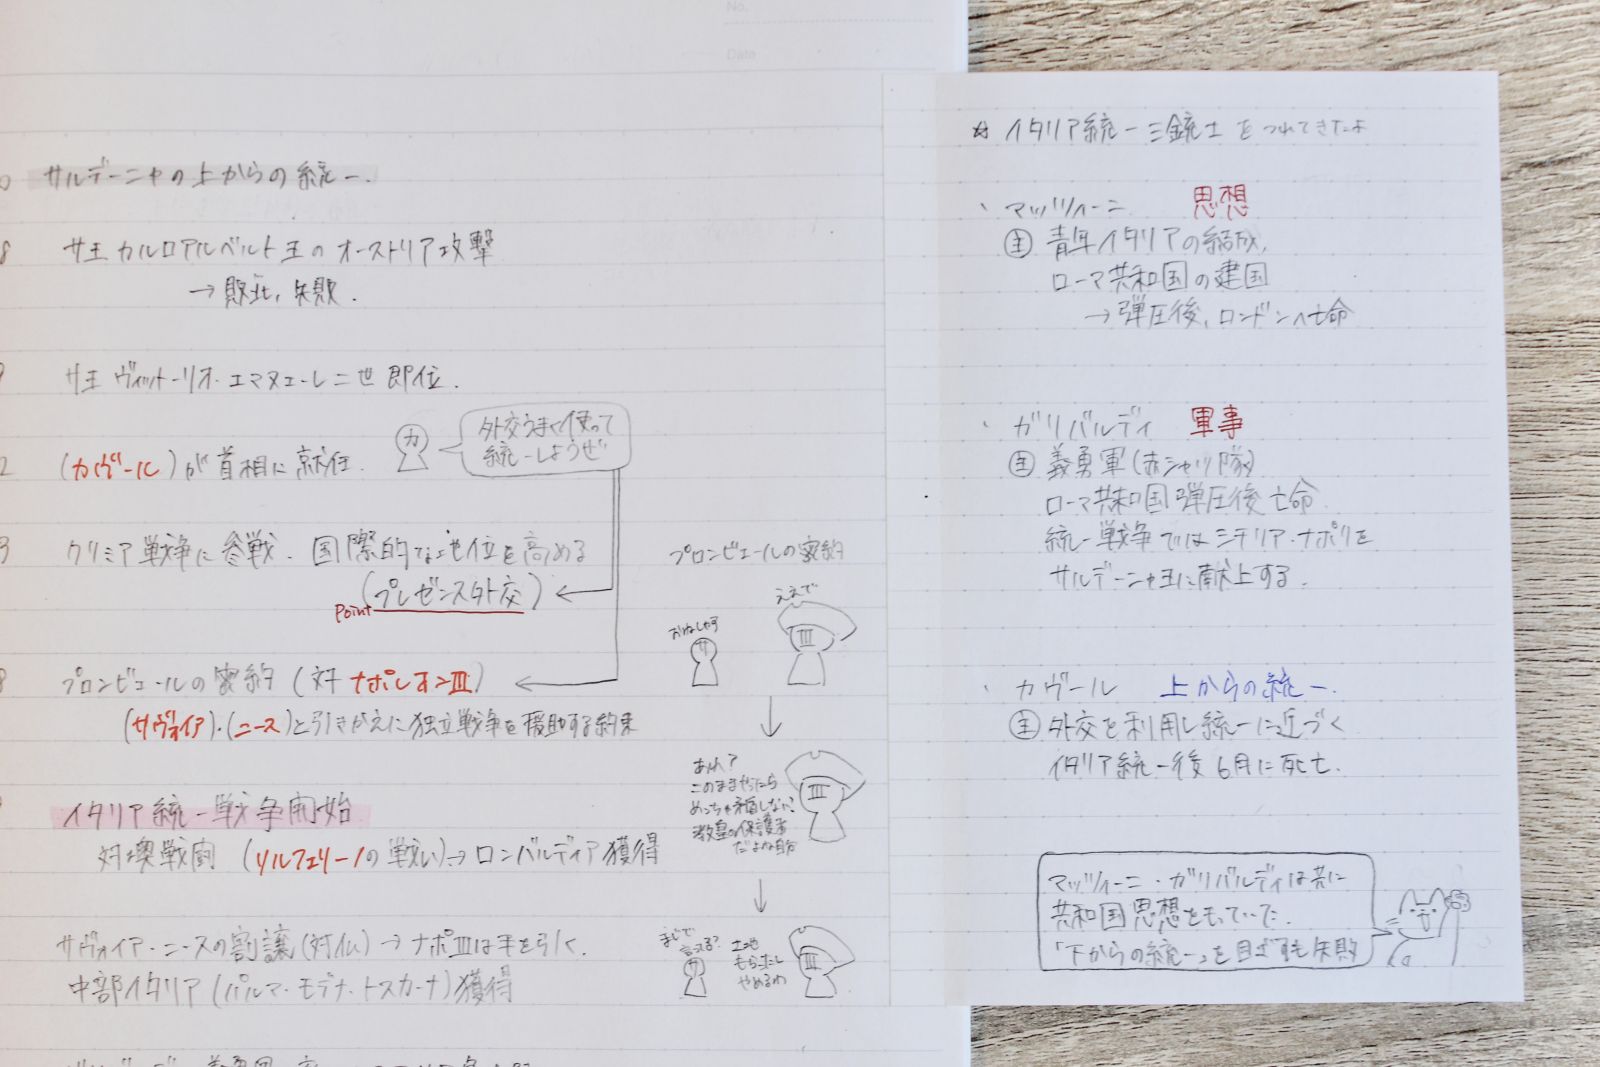 No.
Date
サルデーニャの上からの統一.
8 サ王 カルロアルベルト王のオーストリア攻撃
→敗北, 失敗.
9 サ王 ヴィットーリオ・エマヌエーレ二世 即位.
2 (カヴール)が首相に就任.
カ
外交うまく使って
統一しようぜ
3 クリミア戦争に参戦. 国際的な地位を高める
Point (プレゼンス外交)
プロンビエールの密約
おねしゃす
サ
ええで
III
8 プロンビエールの密約 (対 ナポレオンIII)
(サヴォイア)・(ニース)と引きかえに独立戦争を援助する約束
あれ?
このままやったら
めっちゃ矛盾しない?
教皇の保護者
だよね自分
III
イタリア統一戦争開始
対墺戦闘 (ソルフェリーノの戦い)→ロンバルディア獲得
サヴォイア・ニースの割譲(対仏)→ナポIIIは手を引く.
中部イタリア(パルマ・モデナ・トスカーナ)獲得
まじで
言ってる?
サ
土地
もらったし
やめるわ
III
☆ イタリア統一三銃士をつれてきたよ
・マッツィーニ 思想
主 青年イタリアの結成,
ローマ共和国の建国
→弾圧後, ロンドンへ亡命
・ガリバルディ 軍事
主 義勇軍(赤シャツ隊)
ローマ共和国弾圧後亡命
統一戦争ではシチリア・ナポリを
サルデーニャ王に献上する.
・カヴール 上からの統一.
主 外交を利用し統一に近づく
イタリア統一後6月に死亡.
マッツィーニ・ガリバルディは共に
共和国思想をもっていた.
「下からの統一」を目ざすも失敗